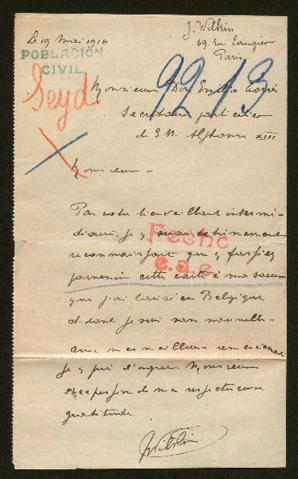 Le 19 mai 1916
J. Wilkin
59. rue Laugier
Paris
POBLACION
CIVIL
Seyd
9213
Monsieur Don Emilio
Secrétaire particulier
de S.M. Alphonse XIII
Monsieur -
Par votre bienveillant intermé-
diaire, je vous extrêmement
reconnaissant que
parvenir cette carte à ma soeur
que j'ai laissé en Belgique
et dont je suis sans nouvelle.
avec mes meilleurs remerciements
je prie d'agréer Monsieur
l'expression de ma respectueuse
gratitude
JWilkin